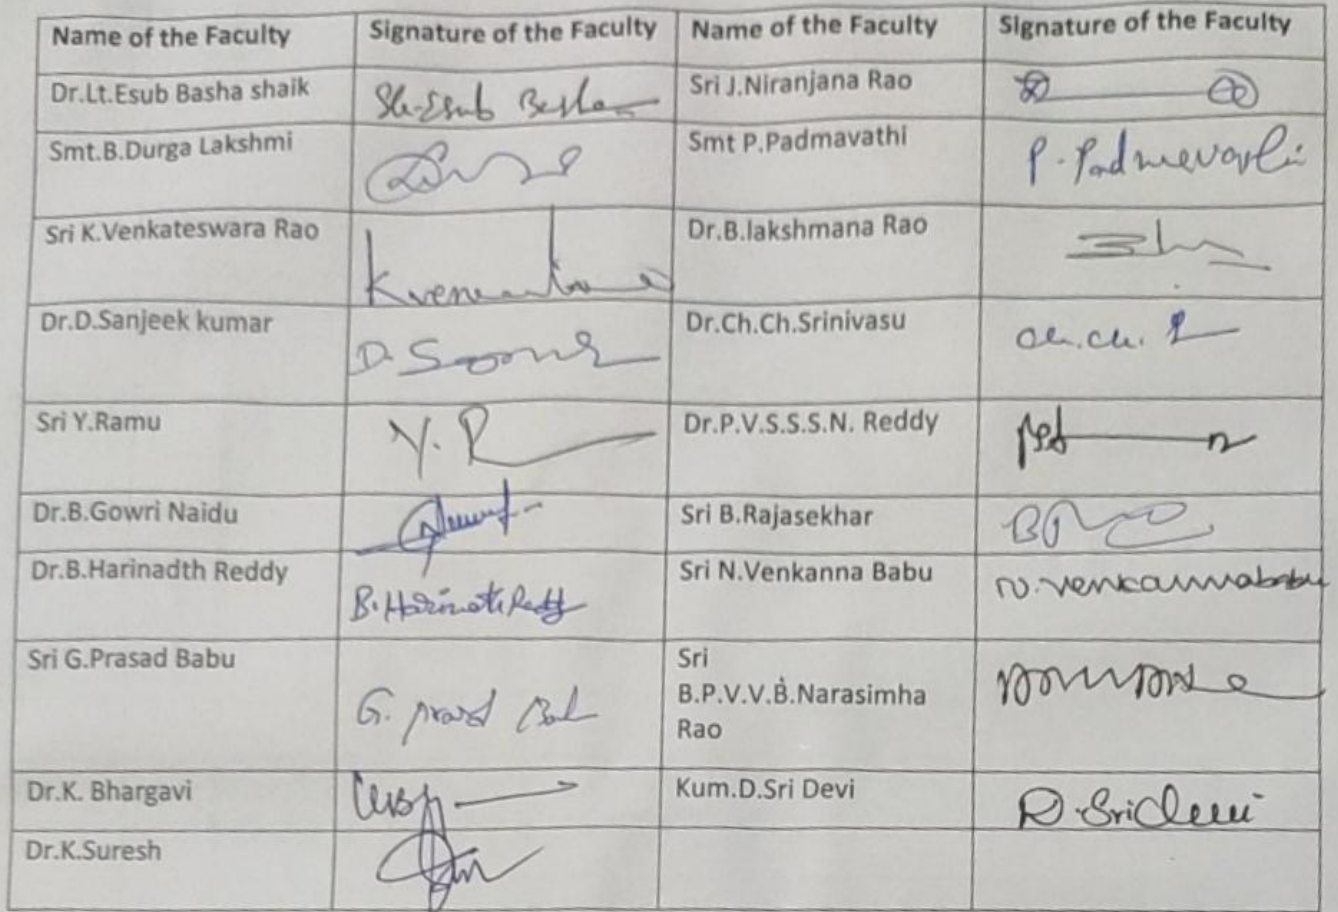 Name of the Faculty Signature of the Faculty Name of the Faculty Signature of the Faculty
Dr.Lt.Esub Basha shaik Sk-Esub Basha Sri J.Niranjana Rao
Smt.B.Durga Lakshmi Smt P.Padmavathi P.Padmavathi
Sri K.Venkateswara Rao Dr.B.lakshmana Rao
Dr.D.Sanjeek kumar Dr.Ch.Ch.Srinivasu Ch.Ch.
Sri Y.Ramu Y.R Dr.P.V.S.S.S.N. Reddy
Dr.B.Gowri Naidu Sri B.Rajasekhar
Dr.B.Harinadth Reddy B.Harinath Reddy Sri N.Venkanna Babu N.Venkannababu
Sri G.Prasad Babu G. Prasad Sri
B.P.V.V.B.Narasimha
Rao
Dr.K. Bhargavi Kum.D.Sri Devi D.Sridevi
Dr.K.Suresh